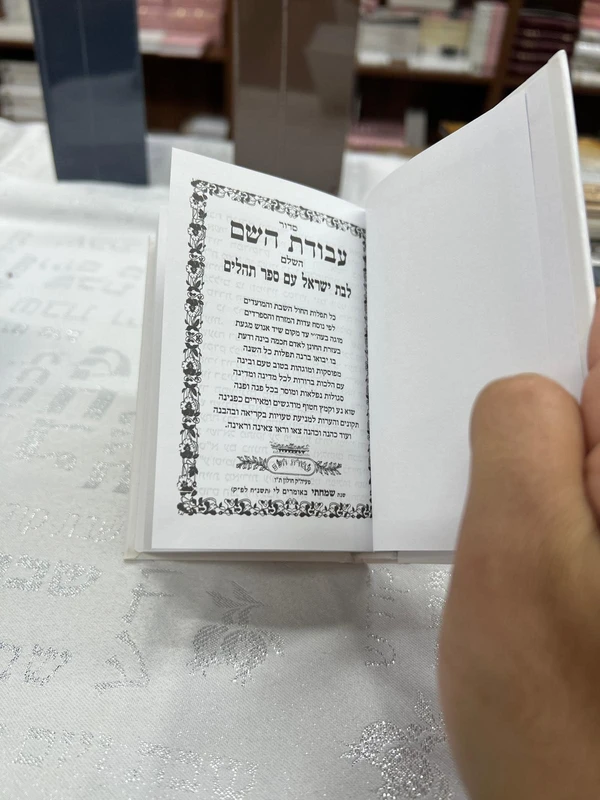 סדור
עבודת השם
השלם
לבת ישראל עם ספר תהלים
כל תפלות החול השבת והמועדים
לפי נוסח עדות המזרח והספרדים
מוגה בעה"י עד מקום שיד אנוש מגעת
בעזרת החונן לאדם חכמה בינה ודעת
בו יבואו ברנה תפלות כל השנה
מפוסקות ומוגהות בטוב טעם ובינה
עם הלכות ברורות לכל מדינה ומדינה
סגולות נפלאות ומוסר בכל פנה ופנה
שוא נע וקמץ חטוף מודגשים ומאירים כפנינה
תקונים והערות למניעת טעויות בקריאה ובהבנה
ועוד כהנה וכהנה צאו וראו צאינה וראינה.
שנת שמחתי באומרים לי (תשנ"ח לפ"ק)